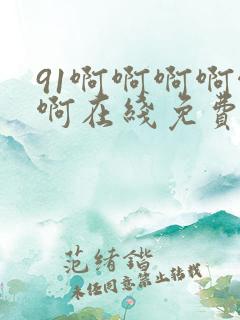 91啊啊啊啊
啊在线免费
范绪锴
未经同意禁止转载